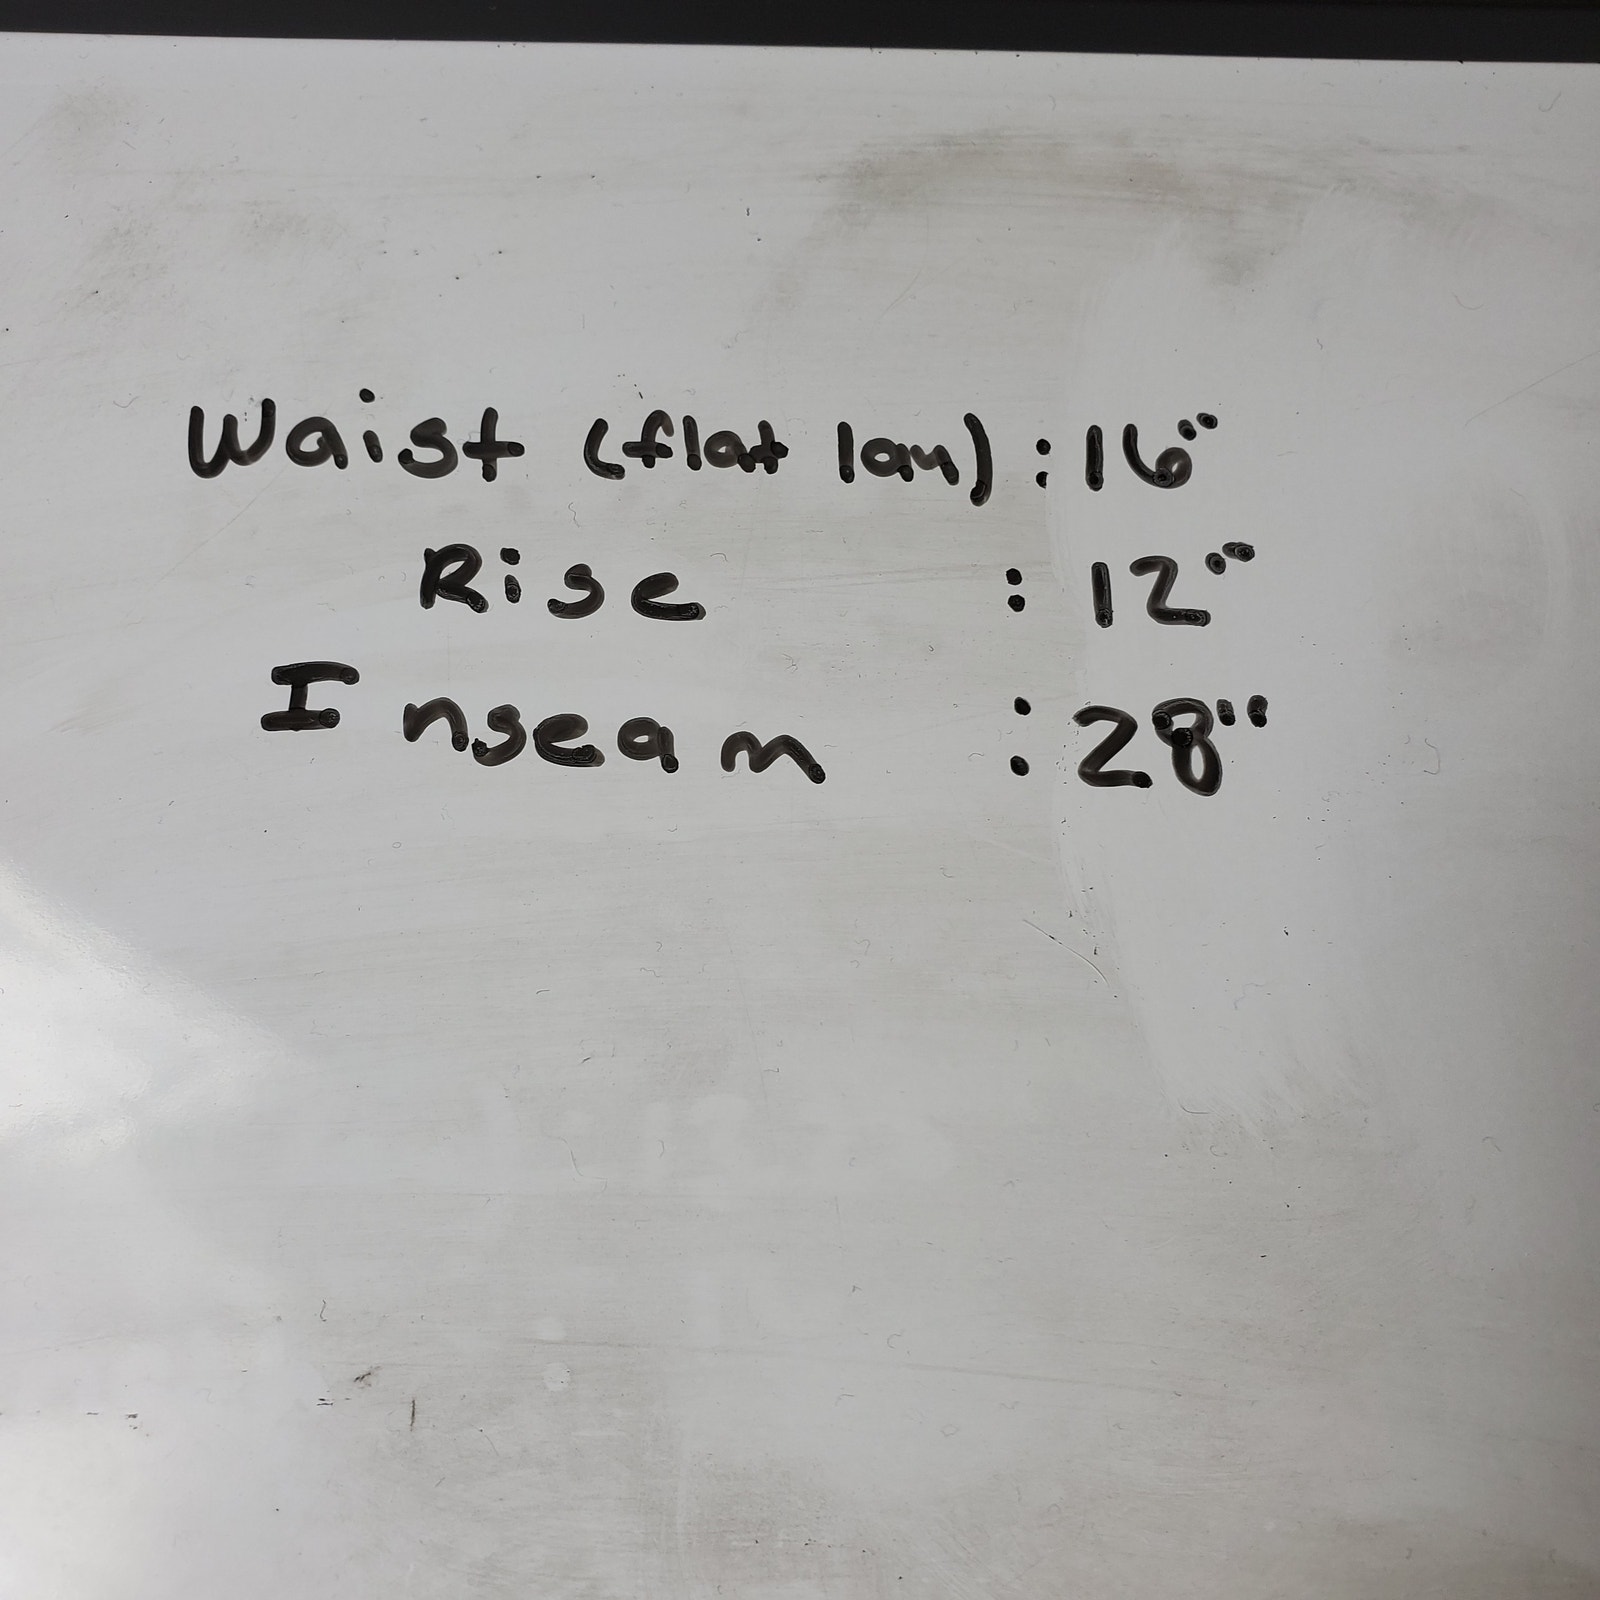 Waist (flat lay) : 16"
Rise : 12"
Inseam : 28"